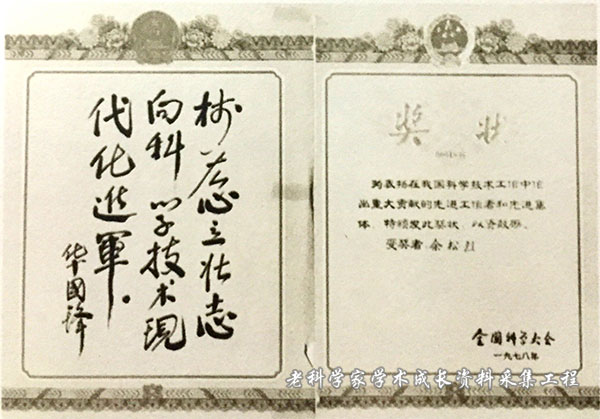 树雄心立壮志
向科学技术现
代化进軍。
华國锋
奖状
为表扬在我国科学技术工作中作
出重大贡献的先进工作者和先进集
体，特颁发此奖状，以资鼓励。
受奖者 余松烈
全国科学大会
一九七八年
老科学家学术成长资料采集工程